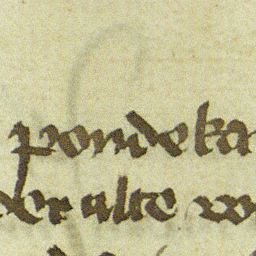 pondeka
der alte vo